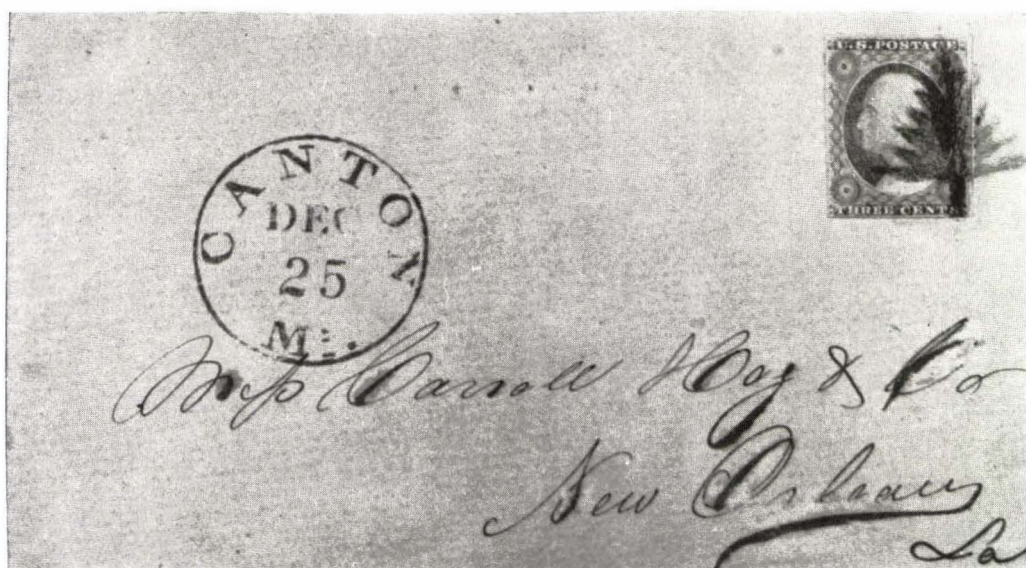 U.S. POSTAGE
THREE CENTS
CANTON
DEC
25
Mi.
Mess Carroll Hoy & Co
New Orleans
La